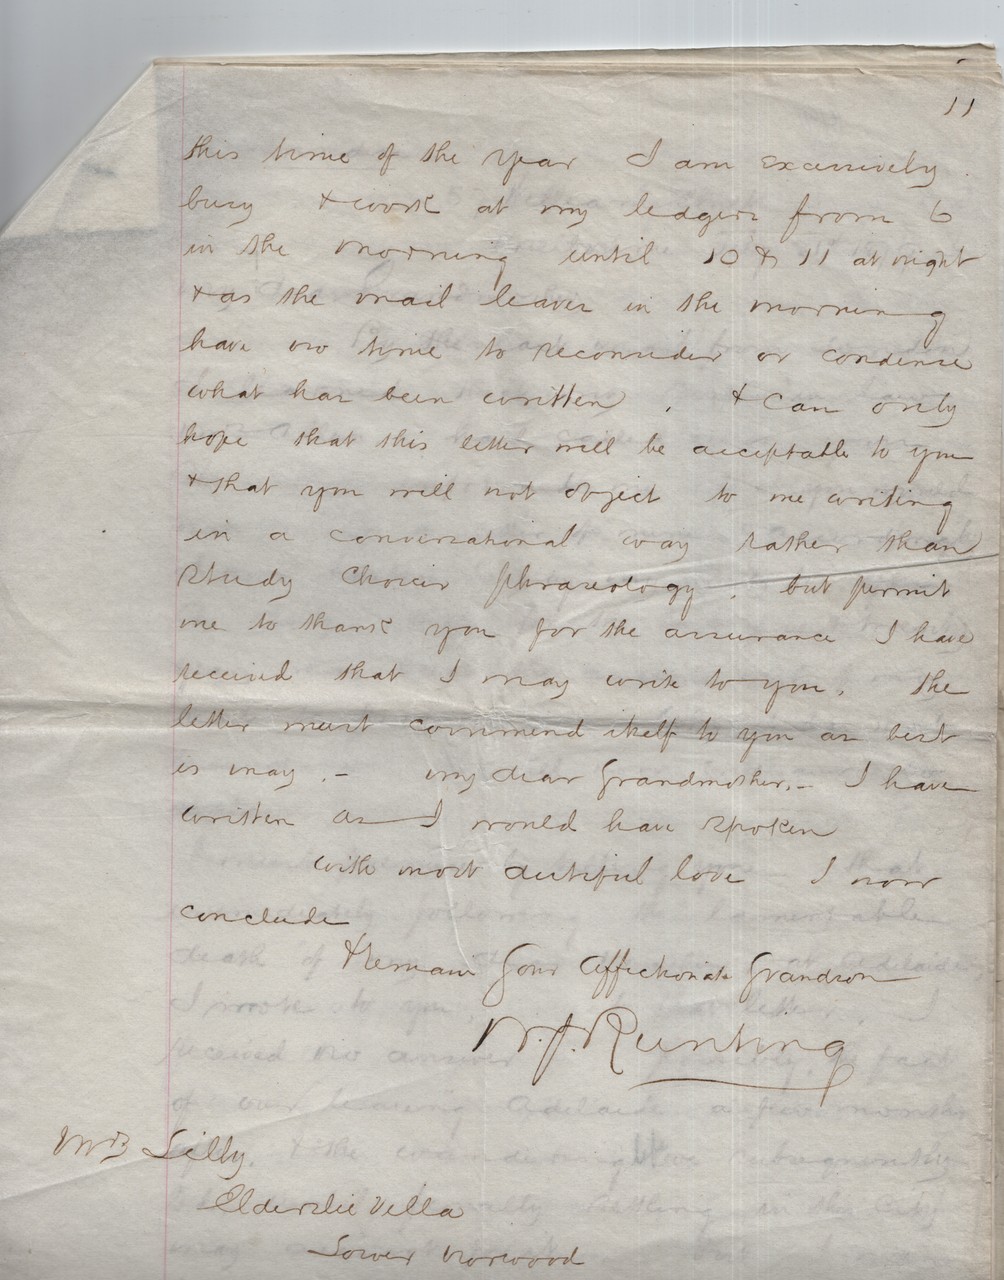 11
this time of the year I am excessively
busy & work at my ledgers from 6
in the morning until 10 & 11 at night
& as the mail leaves in the morning
have no time to reconsider or condense
what has been written, & can only
hope that this letter will be acceptable to you
& that you will not object to me writing
in a conversational way rather than
study choicer phraseology. but permit
me to thank you for the assurance I have
received that I may write to you. the
letter must commend itself to you as best
it may. - my dear Grandmother. - I have
written as I would have spoken
with most dutiful love I now
conclude
& Remain Your Affectionate Grandson
W. J. Runting
Mrs Lilly
Elderslie Villa
Lower Norwood